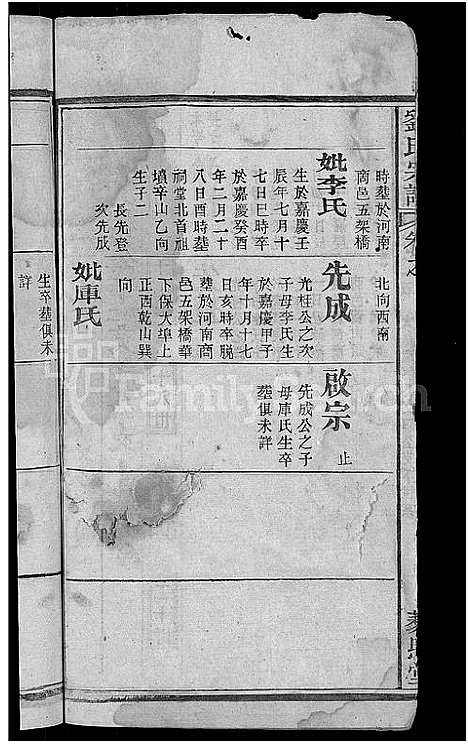 劉氏宗譜
時塟於河南
商邑五架橋
妣李氏
生於嘉慶壬
辰年七月十
七日巳時卒
於嘉慶癸酉
年二月二十
八日酉時塟
祠堂北首祖
墳辛山乙向
生子二
長先登
次先成
北向西南
先成
光柱公之次
子母李氏生
於嘉慶甲子
年十月十七
日亥時卒脱
塟於河南商
邑五架橋華
下保大埠上
正西乾山巽
向
妣庫氏
啟宗
止
先成公之子
母庫氏生卒
塟俱未詳
生卒塟俱未
詳
FamilySearch